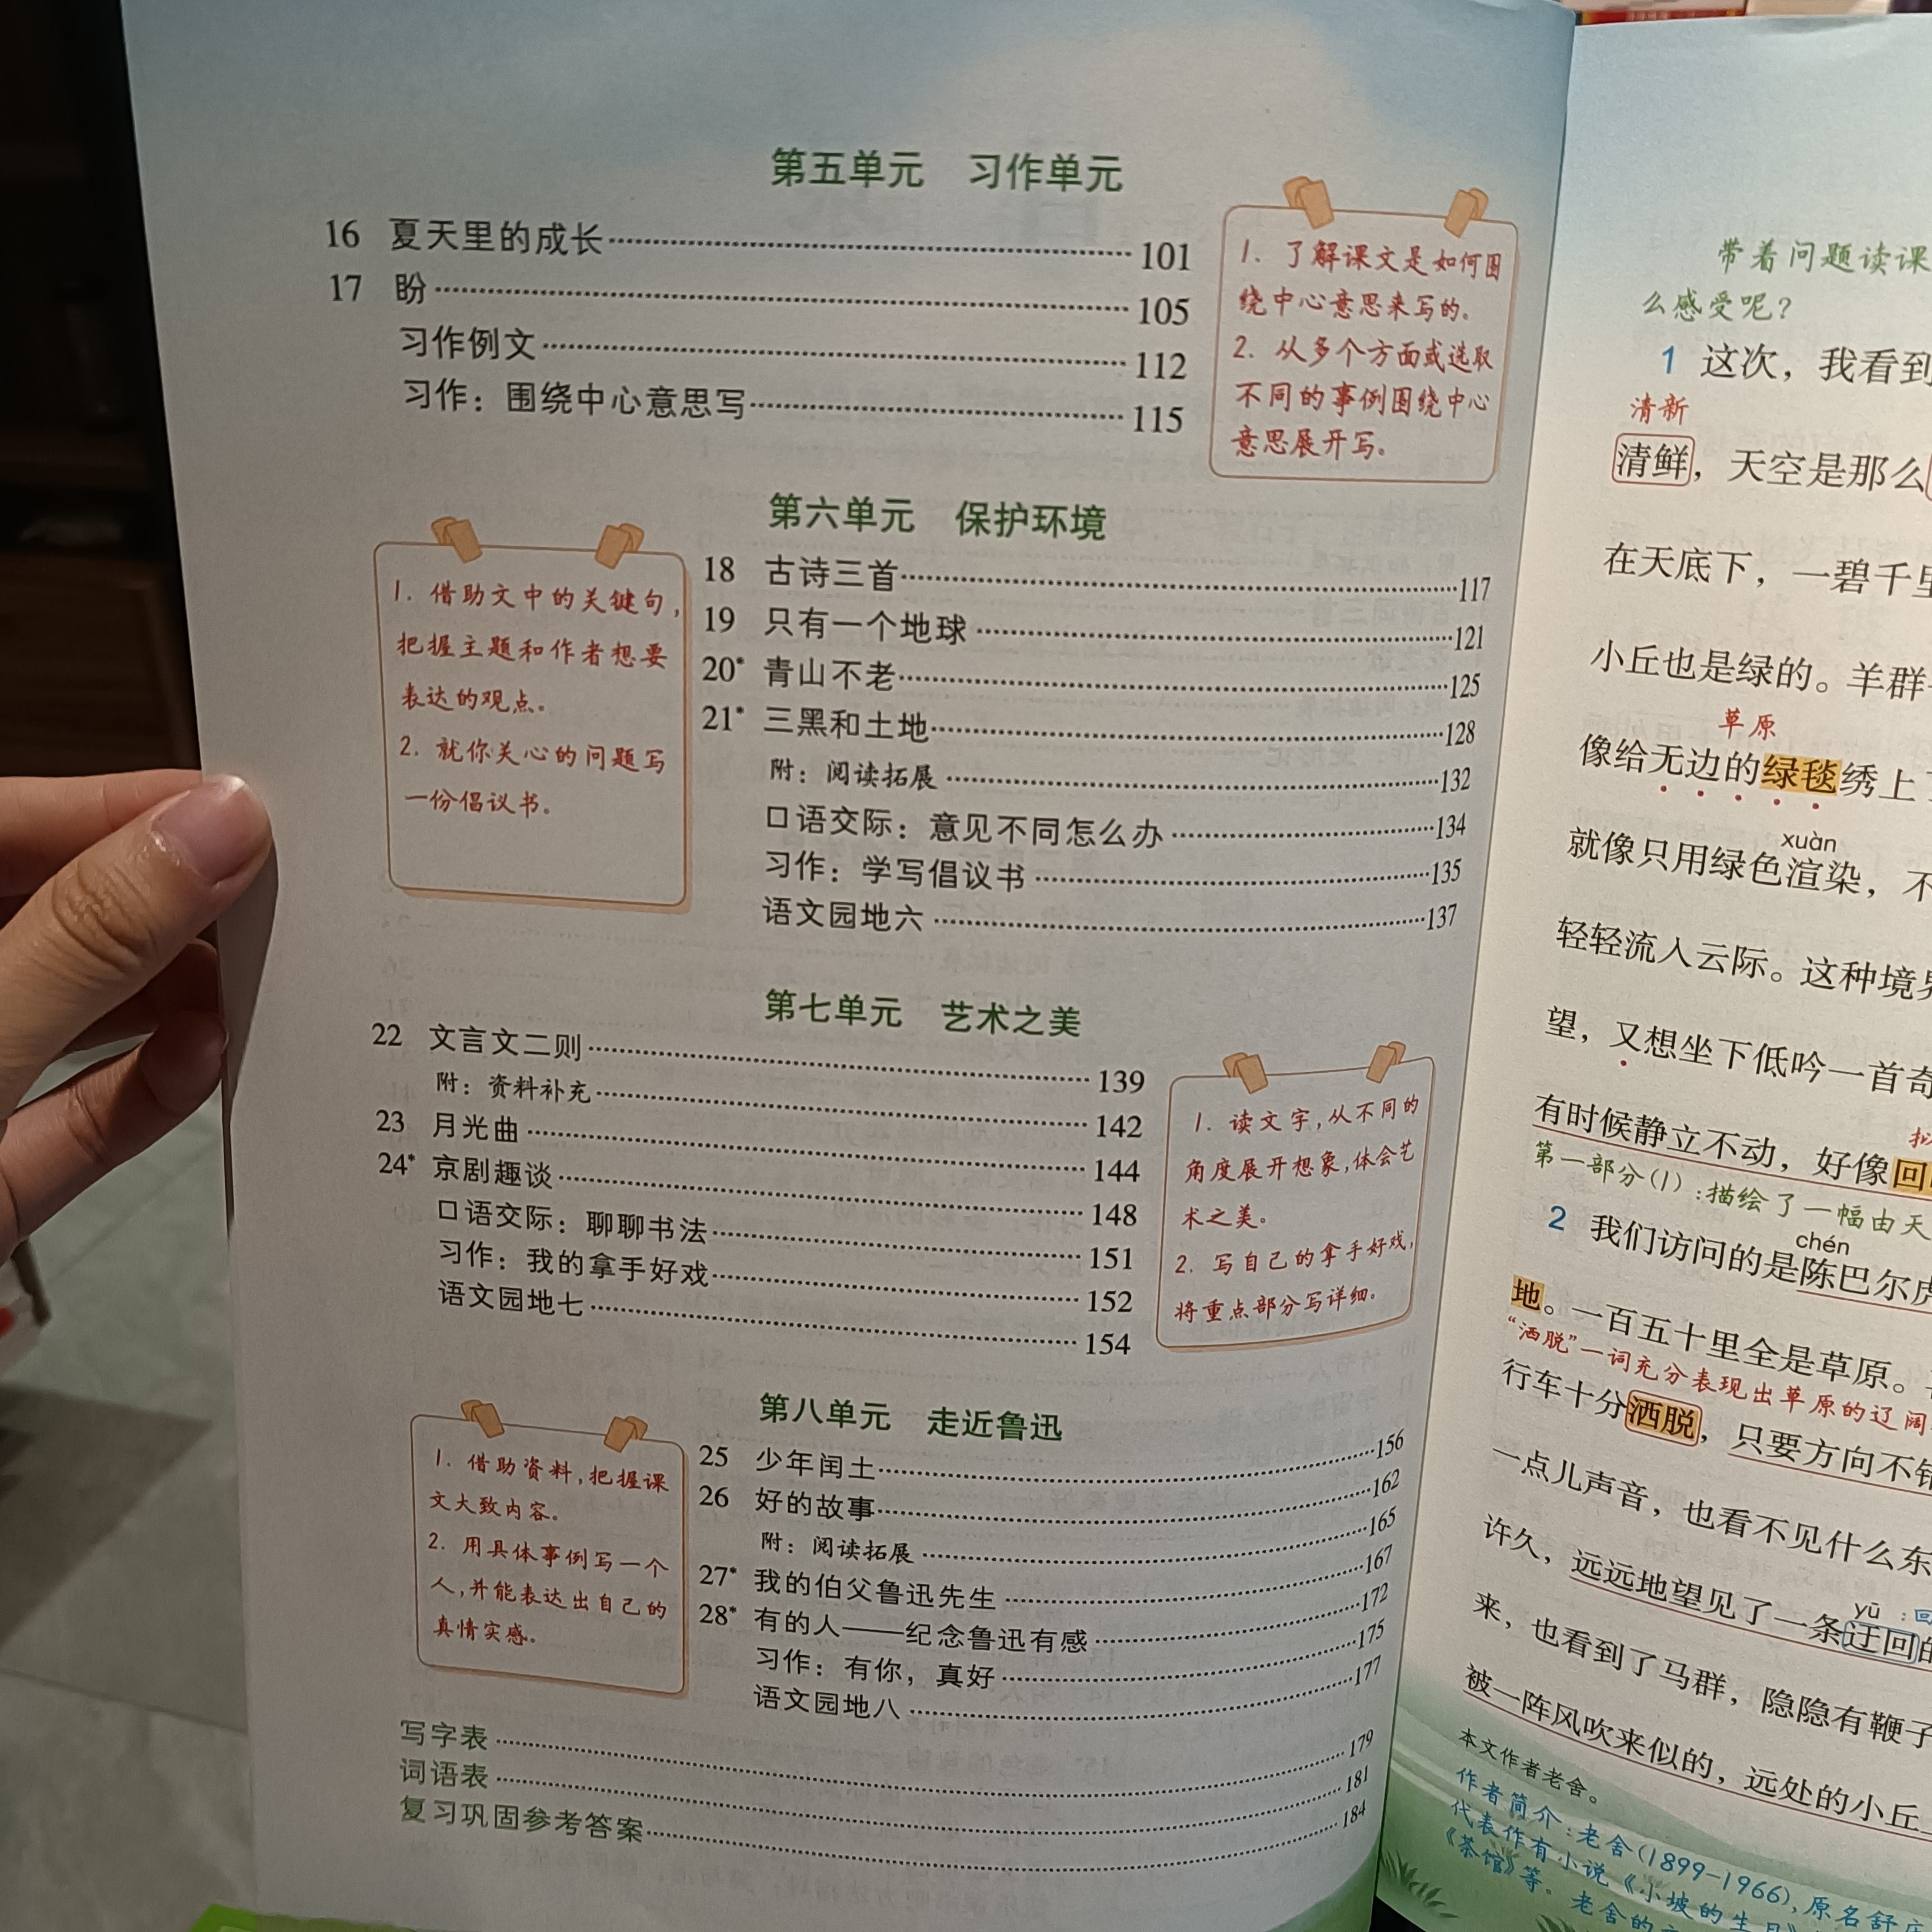 第五单元 习作单元
16 夏天里的成长 101
17 盼 105
习作例文 112
习作：围绕中心意思写 115
1. 了解课文是如何围
绕中心意思来写的。
2. 从多个方面或选取
不同的事例围绕中心
意思展开写。
第六单元 保护环境
1. 借助文中的关键句，
把握主题和作者想要
表达的观点。
2. 就你关心的问题写
一份倡议书。
18 古诗三首 117
19 只有一个地球 121
20* 青山不老 125
21* 三黑和土地 128
附：阅读拓展 132
口语交际：意见不同怎么办 134
习作：学写倡议书 135
语文园地六 137
第七单元 艺术之美
22 文言文二则 139
附：资料补充 142
23 月光曲 144
24* 京剧趣谈 148
口语交际：聊聊书法 151
习作：我的拿手好戏 152
语文园地七 154
1. 读文字，从不同的
角度展开想象，体会艺
术之美。
2. 写自己的拿手好戏，
将重点部分写详细。
第八单元 走近鲁迅
1. 借助资料，把握课
文大致内容。
2. 用具体事例写一个
人，并能表达出自己的
真情实感。
25 少年闰土 156
26 好的故事 162
附：阅读拓展 165
27* 我的伯父鲁迅先生 167
28* 有的人——纪念鲁迅有感 172
习作：有你，真好 175
语文园地八 177
写字表 179
词语表 181
复习巩固参考答案 184
带着问题读课
么感受呢？
1 这次，我看到
清新
清鲜，天空是那么
在天底下，一碧千里
小丘也是绿的。羊群
草原
像给无边的绿毯绣上
xuàn
就像只用绿色渲染，不
轻轻流入云际。这种境界
望，又想坐下低吟一首奇
有时候静立不动，好像回
第一部分(1)：描绘了一幅由天
chén
2 我们访问的是陈巴尔虎
地。一百五十里全是草原。
“洒脱”一词充分表现出草原的辽阔
行车十分洒脱，只要方向不错
一点儿声音，也看不见什么东
许久，远远地望见了一条迂回的
yū
来，也看到了马群，隐隐有鞭子
被一阵风吹来似的，远处的小丘
本文作者老舍。
作者简介：老舍(1899-1966)，原名舒庆
代表作有小说《小坡的生日》
《茶馆》等。老舍的